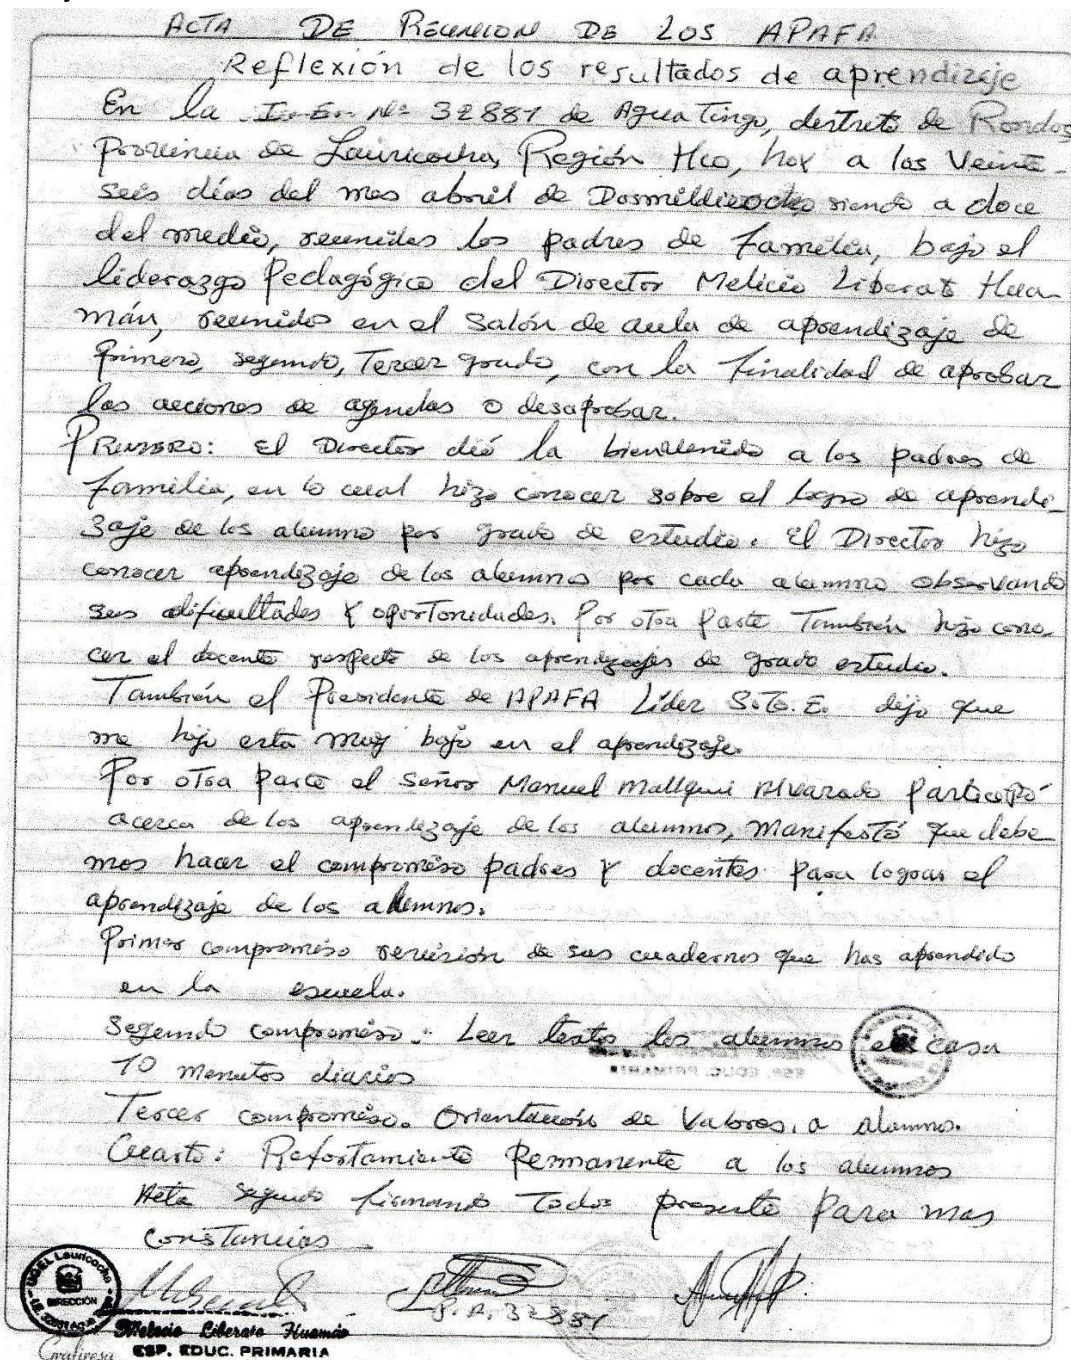 ACTA DE REUNION DE LOS APAFA
Reflexión de los resultados de aprendizaje
En la I.E. Nº 32887 de Agua Tingo, distrito de Rondos,
Provincia de Lauricocha, Región Hco, hoy a los Veinte-
seis días del mes abril de Dosmildieocho siendo a doce
del medio, reunidos los padres de familia, bajo el
liderazgo Pedagógico del Director Melicio Liberato Hua-
mán, reunido en el salón de aula de aprendizaje de
Primero, segundo, Tercer grado, con la finalidad de aprobar
las acciones de agendas o desaprobar.
PRIMERO: El Director dió la bienvenido a los padres de
familia, en lo cual hizo conocer sobre el logro de aprendi-
zaje de los alumno por grado de estudio. El Director hizo
conocer aprendizaje de los alumnos por cada alumno observando
sus dificultades y oportonidades. Por otra Parte También hizo cono-
cer el docente respecto de los aprendizajes de grado estudio.
También el Presidente de APAFA Líder Soto. E. dijo que
me hijo esta muy bajo en el aprendizaje.
Por otra Parte el señor Manuel Mallqui Alvarado Participó
acerca de los aprendizaje de los alumnos, manifestó que debe
mos hacer el compromiso padres y docentes para lograr el
aprendizaje de los alumnos.
Primer compromiso revisión de sus cuadernos que has aprendido
en la escuela.
Segundo compromiso: Leer textos los alumnos en casa
10 menutos diarios
Tercer compromiso. Orientación de Valores, a alumno.
Cuarto: Refortamiento Permanente a los alumnos
Acta seguido firmando Todos presente para mas
constancias
UGEL Lauricocha
DIRECCIÓN
P. A. 32887
Melecio Liberato Huamán
ESP. EDUC. PRIMARIA